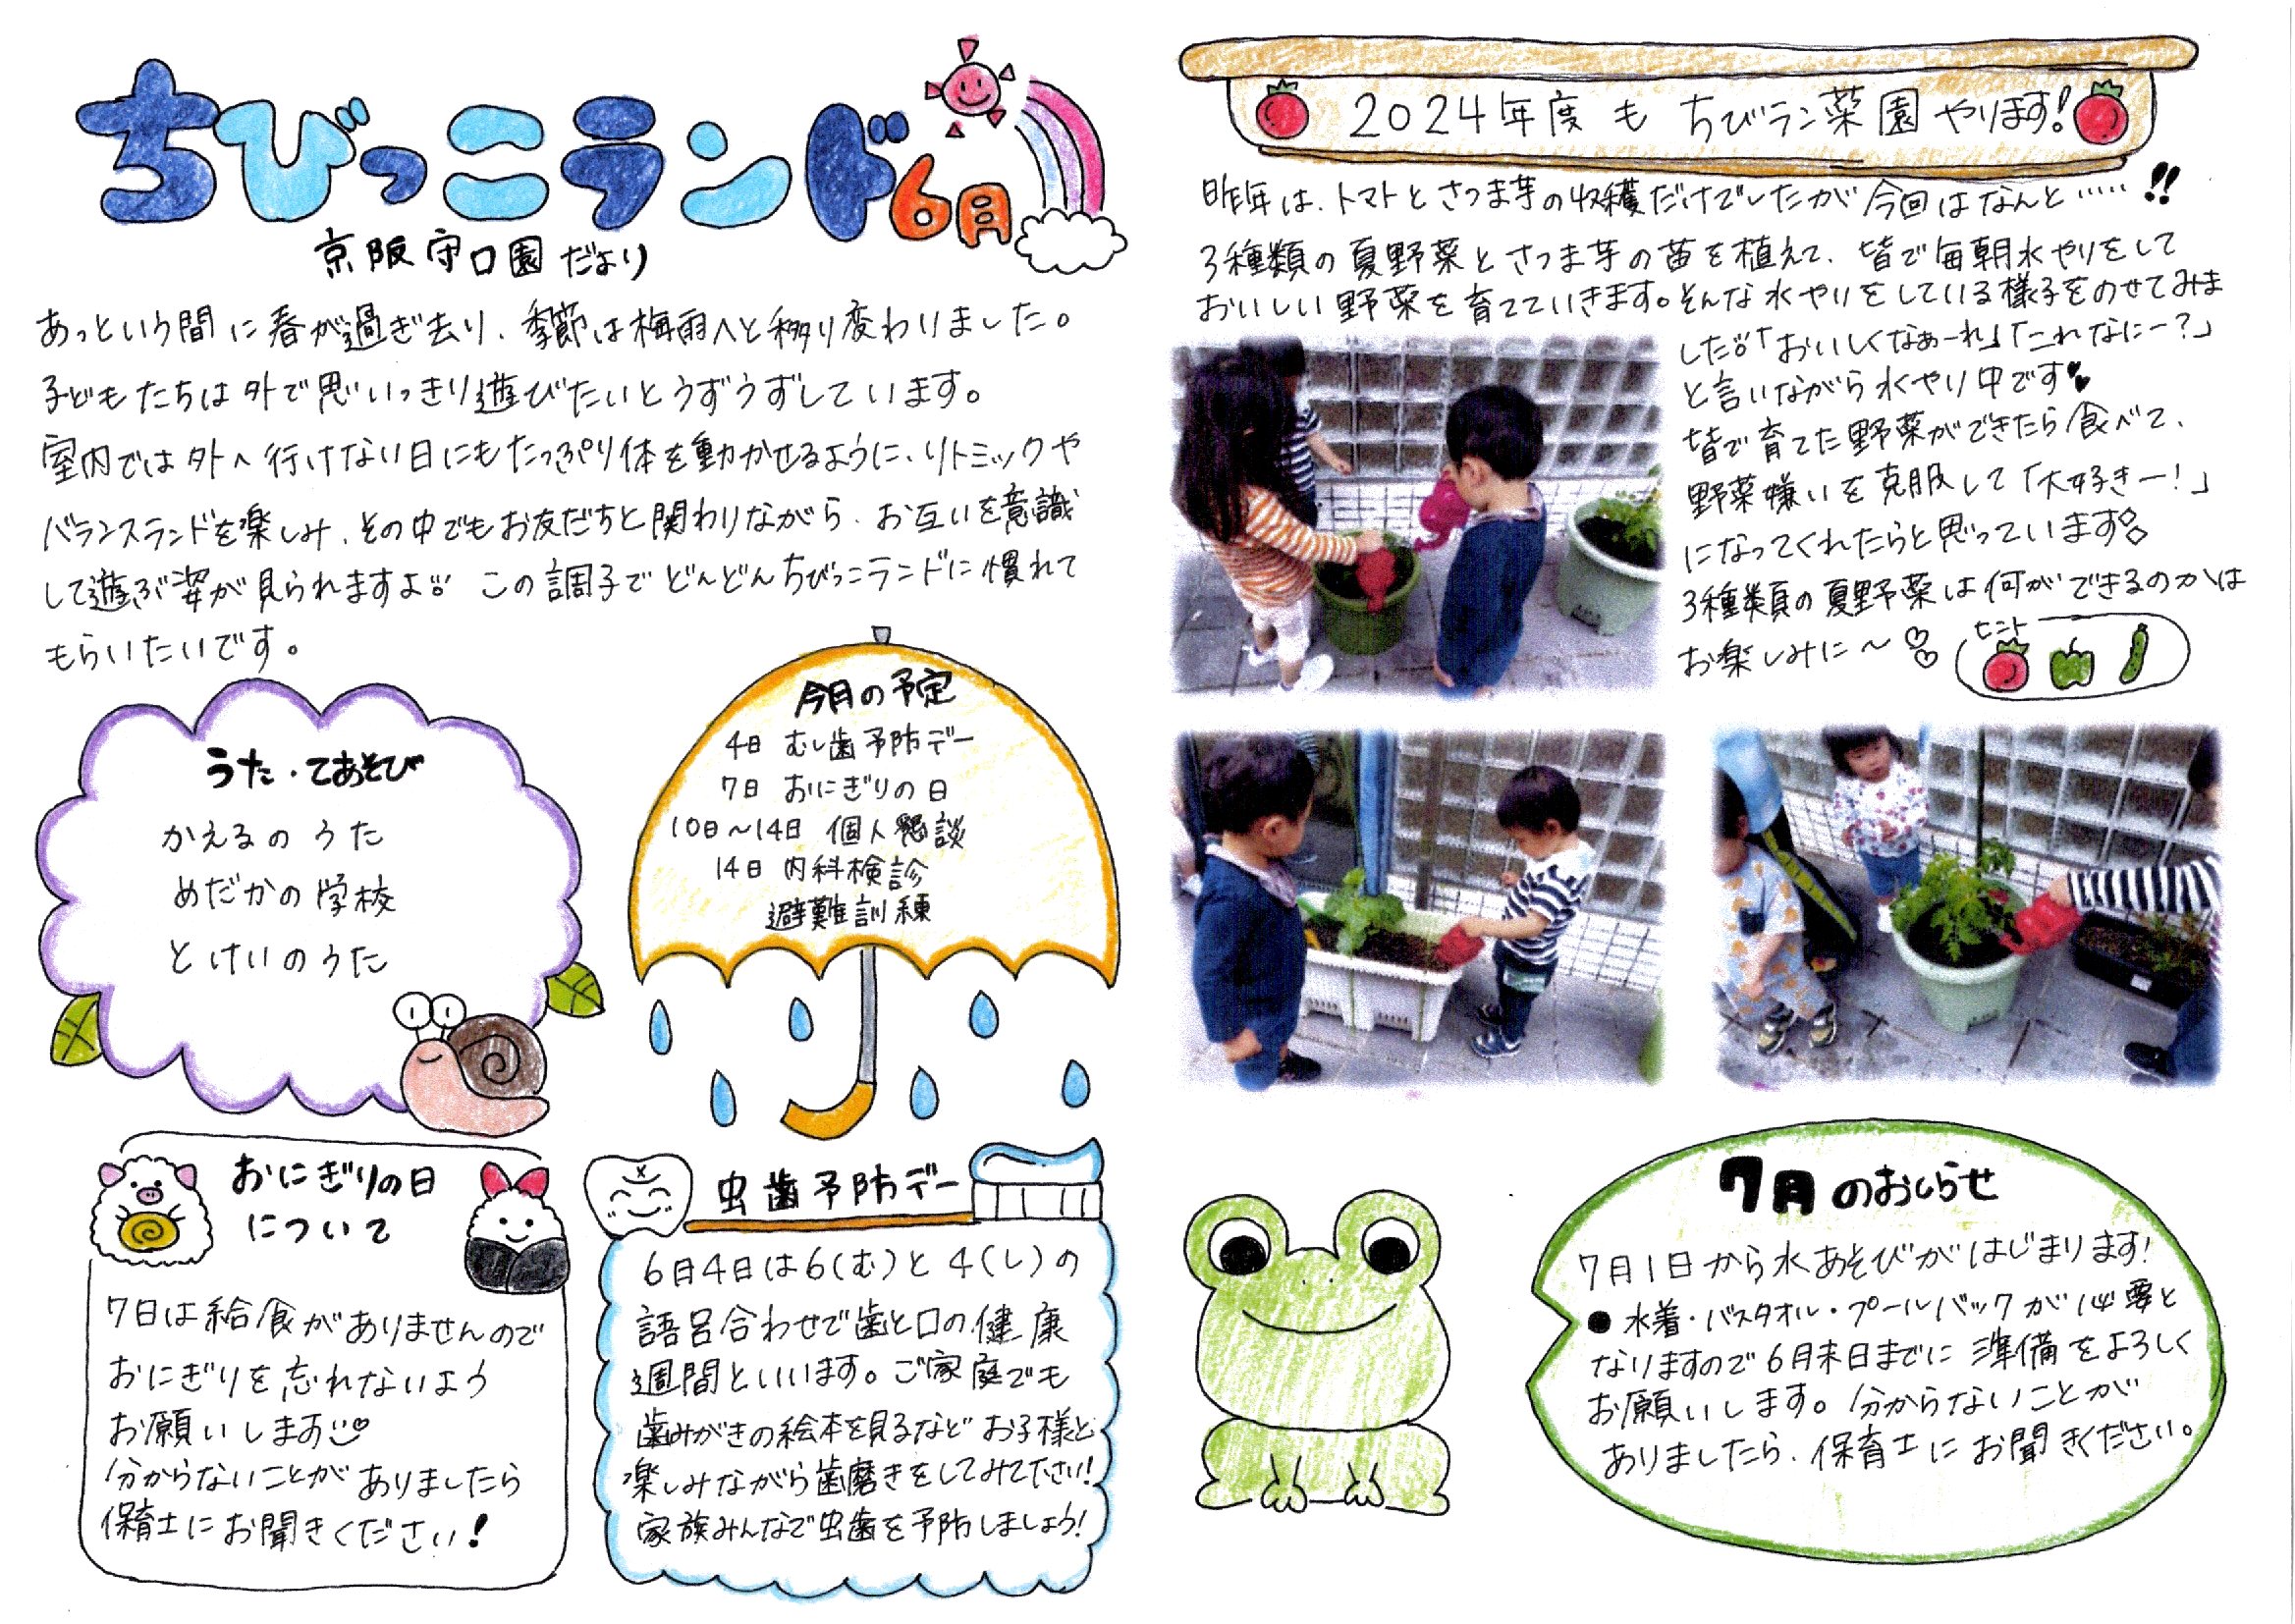 ちびっこランド6月
京阪守口園だより
あっという間に春が過ぎ去り、季節は梅雨へと移り変わりました。
子どもたちは外で思いっきり遊びたいとうずうずしています。
室内では外へ行けない日にもたっぷり体を動かせるように、リトミックや
バランスランドを楽しみ、その中でもお友だちと関わりながら、お互いを意識
して遊ぶ姿が見られますよ。この調子でどんどんちびっこランドに慣れて
もらいたいです。
うた・てあそび
かえるのうた
めだかの学校
とけいのうた
今月の予定
4日 むし歯予防デー
7日 おにぎりの日
10日~14日 個人懇談
14日 内科検診
避難訓練
おにぎりの日
について
7日は給食がありませんので
おにぎりを忘れないよう
お願いします
分からないことがありましたら
保育士にお聞きください!
虫歯予防デー
6月4日は6(む)と4(し)の
語呂合わせで歯と口の健康
週間といいます。ご家庭でも
歯みがきの絵本を見るなどお子様と
楽しみながら歯磨きをしてみて下さい!
家族みんなで虫歯を予防しましょう!
2024年度も ちびラン菜園やります!
昨年は、トマトとさつま芋の収穫だけでしたが今回はなんと……!!
3種類の夏野菜とさつま芋の苗を植えて、皆で毎朝水やりをして
おいしい野菜を育てていきます。そんな水やりをしている様子をのせてみま
した。「おいしくなぁーれ」「これなにー?」
と言いながら水やり中です
皆で育てた野菜ができたら食べて、
野菜嫌いを克服して「大好きー!」
になってくれたらと思っています
3種類の夏野菜は何ができるのかは
お楽しみに~
ヒント
7月のおしらせ
7月1日から水あそびがはじまります!
●水着・バスタオル・プールバックが必要と
なりますので6月末日までに準備をよろしく
お願いします。分からないことが
ありましたら、保育士にお聞きください。